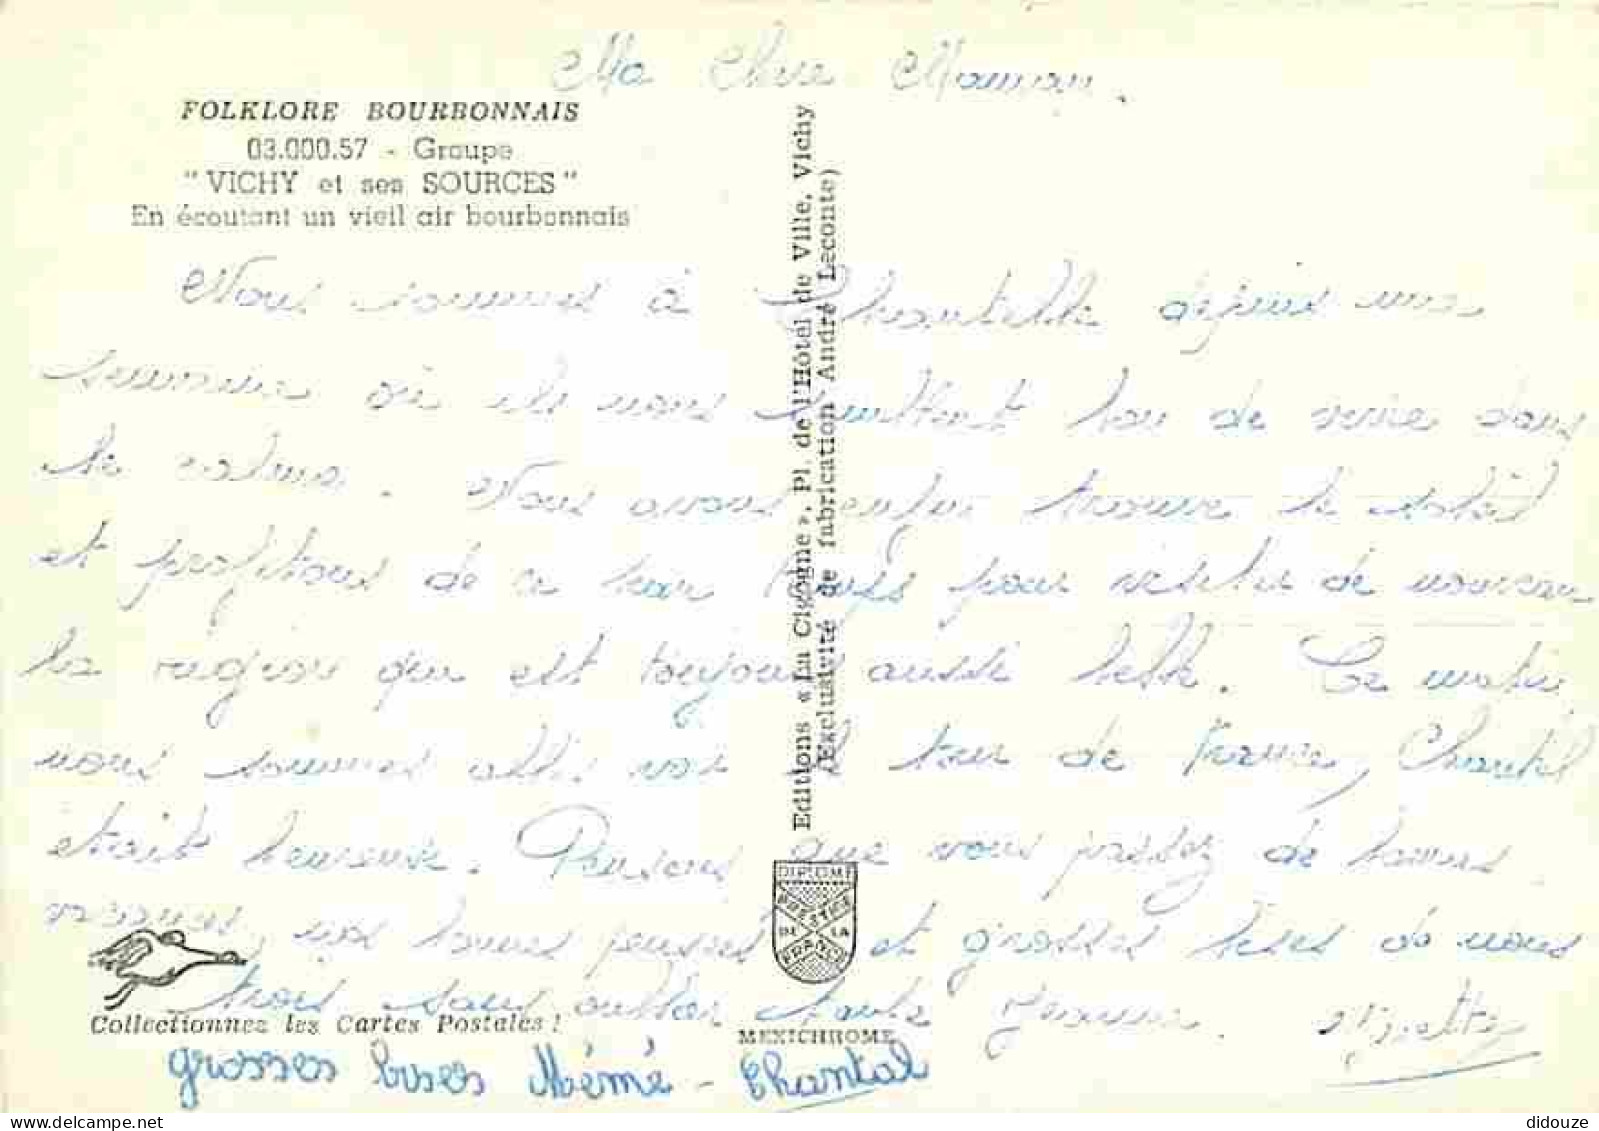 Ma Chère Maman.
FOLKLORE BOURBONNAIS
03.000.57 - Groupe
"VICHY et ses SOURCES"
En écoutant un vieil air bourbonnais
Nous sommes à Chantelle depuis une
semaine où il nous tou de dans
le calme. Nous avons enfin trouvé le soleil
et profitons de ce beau temps pour visiter de nouveau
la région qui est toujours aussi belle. Ce matin
nous sommes allés voir le tour de France, Chantal
était heureuse. Pensons que vous passez de bonnes
vos bonnes pensées et grosses bises de nous
trois sans oublier tante Yvonne. 
grosses bises Mémé - Chantal
Editions «La Cigogne», Pl. de l'Hôtel de Ville, Vichy
(Exclusivité de fabrication André Leconte)
DIPLOME
PRESTIGE
DE LA
FRANCE
MEXICHROME
Collectionnez les Cartes Postales !
didouze